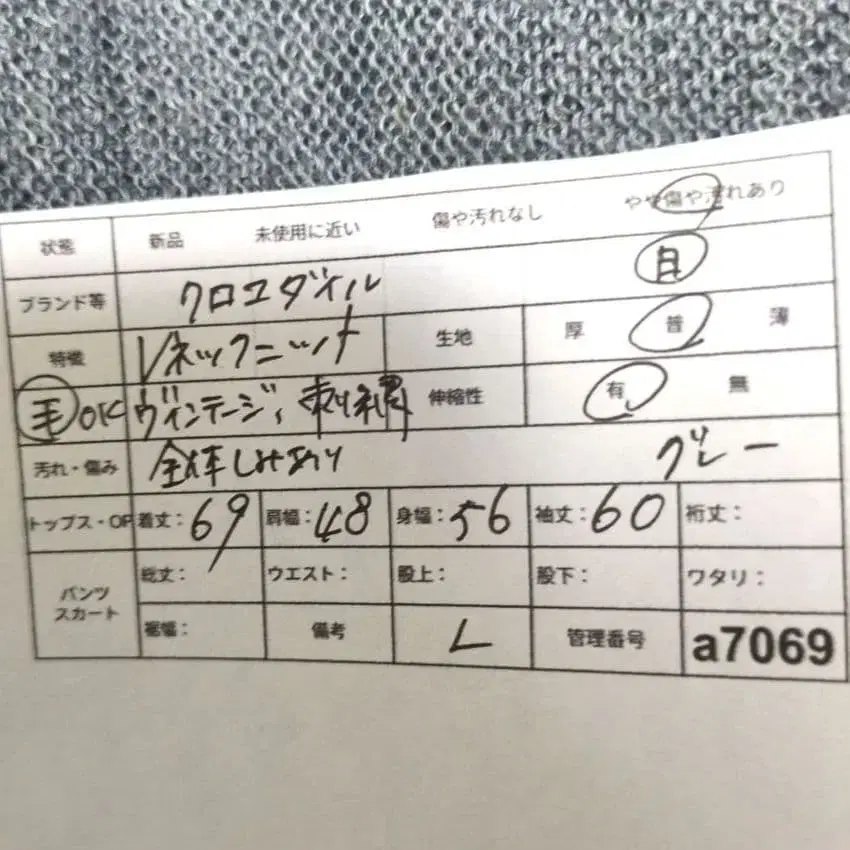 状態 新品 未使用に近い 傷や汚れなし やや傷や汚れあり
ブランド等 クロコダイル 日
特徴 Vネックニット 生地 厚 普 薄
毛OK ヴィンテージ、刺繍 伸縮性 有 無
汚れ・傷み 全体しみあり グレー
トップス・OP 着丈：69 肩幅：48 身幅：56 袖丈：60 裄丈：
パンツ スカート 総丈： ウエスト： 股上： 股下： ワタリ：
裾幅： 備考 L 管理番号 a7069